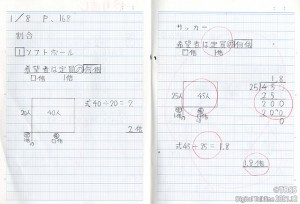 1/8 P.168
割合
1 ソフトボール
希望者は定員の何倍
□倍 1倍
20人 40人
式40÷20=2
2倍
サッカー
希望者は定員の何倍
□倍 1倍
25人 45人
1.8
25)45
25
200
200
0
式45÷25=1.8
1.8倍
©TOSS
Digital Edition 2021.12